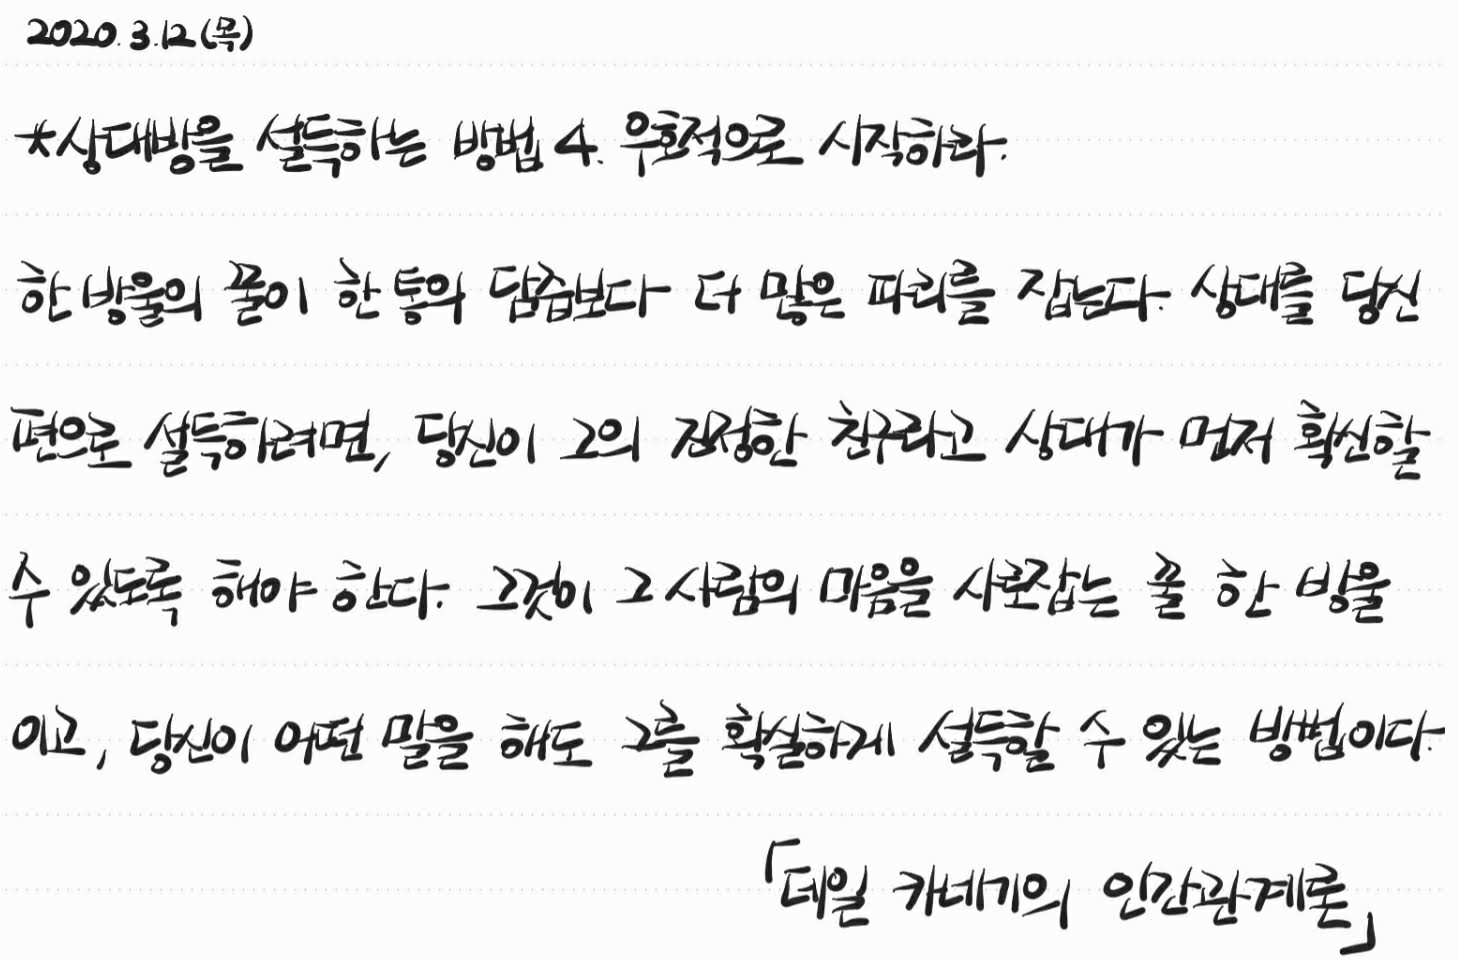 2020. 3. 12 (목)
*상대방을 설득하는 방법 4. 우호적으로 시작하라.
한 방울의 꿀이 한 통의 담즙보다 더 많은 파리를 잡는다. 상대를 당신
편으로 설득하려면, 당신이 그의 진정한 친구라고 상대가 먼저 확신할
수 있도록 해야 한다. 그것이 그 사람의 마음을 사로잡는 꿀 한 방울
이고, 당신이 어떤 말을 해도 그를 확실하게 설득할 수 있는 방법이다.
「데일 카네기의 인간관계론」